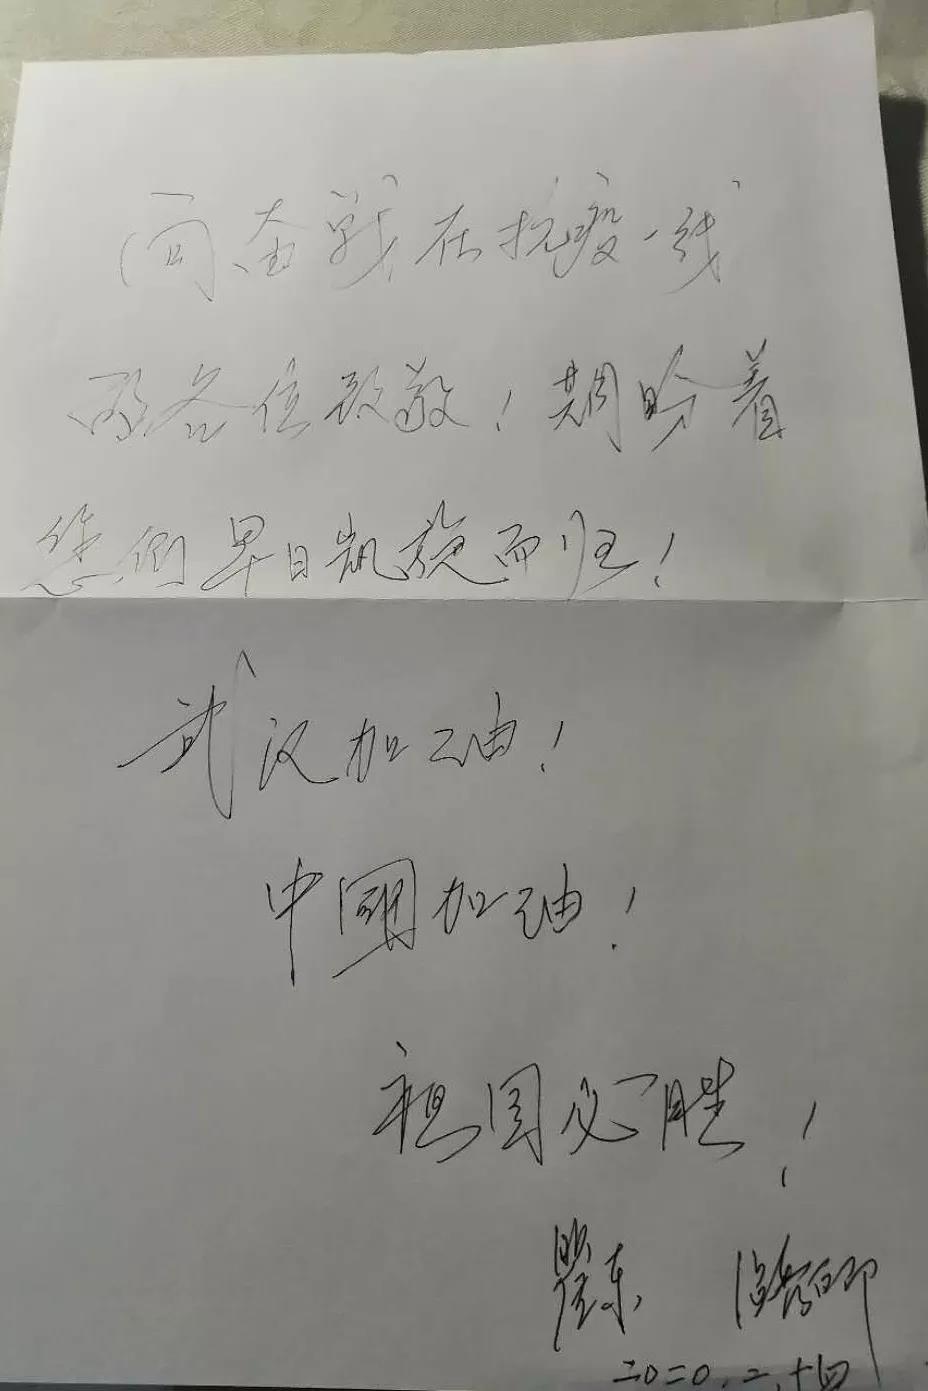 向奋战在抗疫一线
的各位致敬！期盼着
您们早日凯旋而归！
武汉加油！
中國加油！
祖国必胜！
二〇二〇.二.十四